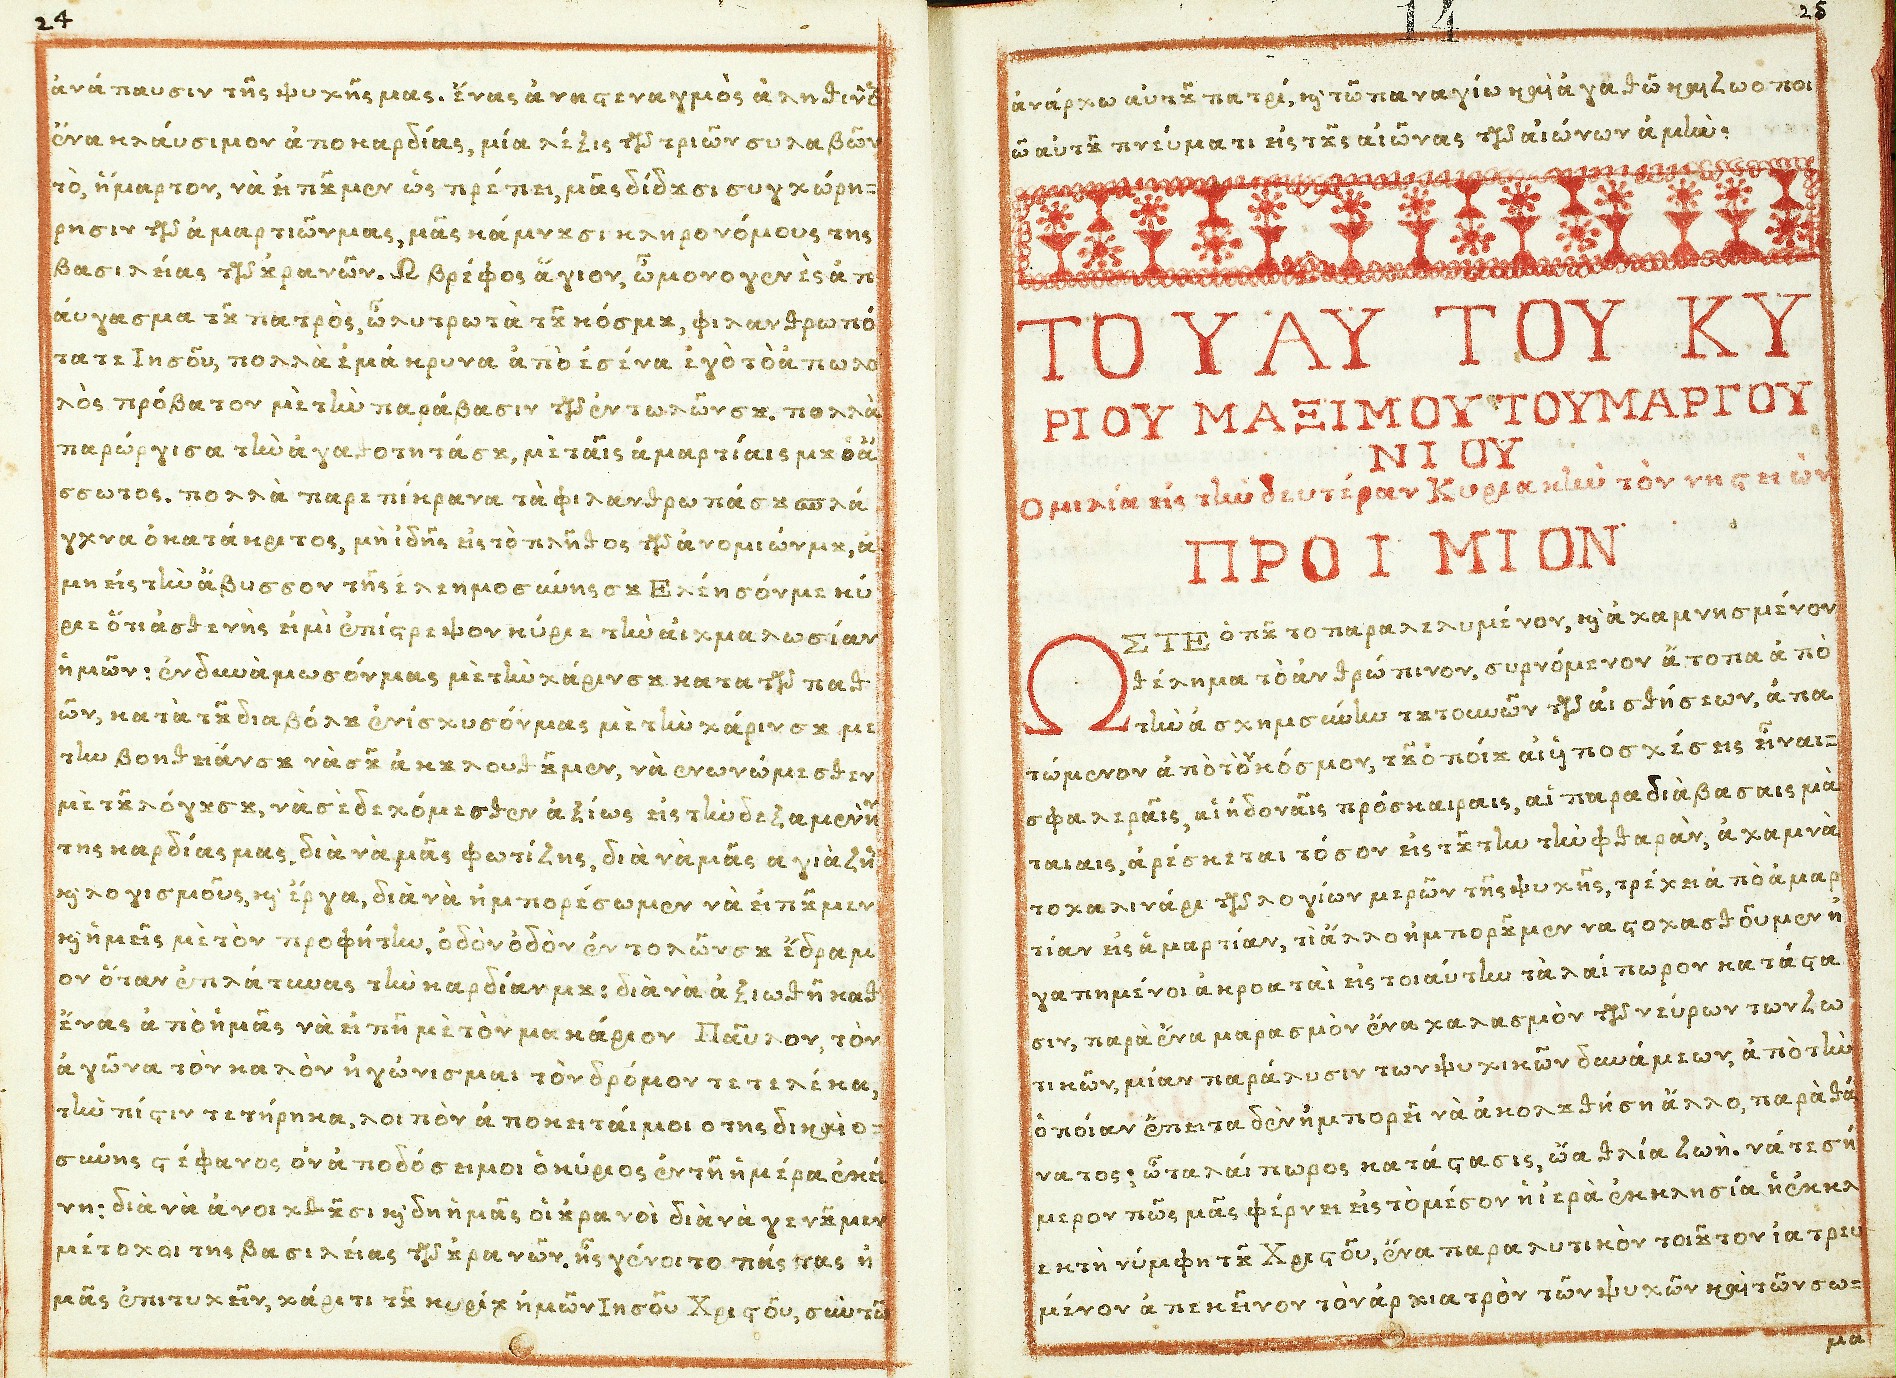 24
ἀνάπαυσιν τῆς ψυχῆς μας. ἕνας ἀνηστεναγμὸς ἀληθινὸ
ἕνα κλάυσιμον ἀπο καρδίας, μία λέξις τῶν τριῶν συλαβῶν
τὸ, ἥμαρτον, νὰ εἰποῦμεν ὡς πρέπει, μᾶς δίδουσι συγχώρη=
ρησιν τῶν ἁμαρτιῶν μας, μᾶς κάμνουσι κληρονόμους της
βασιλείας τῶν οὐρανῶν. Ω βρέφος ἅγιον, ὦ μονογενὲς ἀπ
άυγασμα τοῦ πατρὸς, ὦ λυτρωτὰ τοῦ κόσμου, φιλανθρωπό
τατε Ιησοῦ, πολλὰ ἐμάκρυνα ἀπὸ ἐσένα ἐγὸ τὸ ἀπωλο
λὸς πρόβατον μὲ τὴν παράβασιν τῶν ἐντωλῶν σου. πολλὰ
παρώργισα τὴν ἀγαθοτητά σου, μὲ ταῖς ἁμαρτίαις μου ὁ ἄ
σσωτος. πολλὰ παρεπίκρανα τὰ φιλανθρωπά σου σπλά
γχνα ὁ κατάκριτος, μὴ ἰδῆς εἰς τὸ πλῆθος τῶν ἀνομιών μου, ἀ
μη εἰς τὴν ἄβυσσον τῆς ἐλεημοσύνης σου Ελέησόν με κύ
ριε ὅτι ἀσθενής εἰμὶ ἐπίστρεψον κύριε τὴν αἰχμαλωσίαν
ἡμῶν: ἐνδυνάμωσόν μας μὲ τὴν χάριν σου κατα τῶν παθ
ῶν, κατὰ τοῦ διαβόλου ἐνίσχυσόν μας μὲ τὴν χάριν σου με
την βοηθειάν σου νὰ σοῦ ἀκουλουθοῦμεν, νὰ ενωνώμεσθεν
μὲ τοῦ λόγου σου, νὰ σὲ δεχόμεσθεν ἀξίως εἰς τὴν δεξαμενὴν
της καρδίας μας, διὰ νὰ μᾶς φωτίζης, διὰ νὰ μᾶς αγιάζῃ
καὶ λογισμοῦς, καὶ ἔργα, διὰ νὰ ἠμπορέσωμεν νὰ εἰποῦμεν
καὶ ἡμεῖς μὲ τὸν προφήτην, ὁδὸν ὁδὸν ἐντολῶν σου ἔδραμ
ον ὅταν ἐπλάτυνας τὴν καρδίαν μου: διὰ νὰ ἀξιωθῆ καθ
ἕνας ἀπὸ ἡμᾶς νὰ εἰπῆ μὲ τὸν μακάριον Παῦλον, τὸν
ἀγῶνα τὸν καλὸν ἠγώνισμαι τὸν δρόμον τετελέκα,
τὴν πίστιν τετήρηκα, λοιπὸν ἀποκειταί μοι ο της δικαιο=
σύνης στέφανος ὃν ἀποδόσει μοι ὁ κύριος ἐν τῆ ἡμέρα ἐκεί
νη: διὰ νὰ ἀνοιχθοῦσι καὶ δη ἡμᾶς οἱ οὐρανοὶ διὰ νὰ γενοῦμεν
μέτοχοι της βασιλείας τῶν οὐρανῶν. ἧς γένοιτο πάςπας ἡ
μᾶς ἐπιτυχεῖν, χάριτι τοῦ κυρίου ἡμῶν Ιησοῦ Χριστοῦ, σὺν τῶ
14
25
ἀνάρχω αὐτοῦ πατρί, καὶ τῶ παναγίω καὶ ἀγαθῶ καὶ ζωοποι
ῶ αὐτοῦ πνεύματι εἰς τοῦς αἰῶνας τῶν αἰώνων ἀμὴν
ΤΟΥ ΑΥ ΤΟΥ ΚΥ
ΡΙΟΥ ΜΑΞΙΜΟΥ ΤΟΥ ΜΑΡΓΟΥ
ΝΙΟΥ
Ομιλία εἰς τὴν δευτέραν Κυριακὴν τὸν νηστειῶν
ΠΡΟΙΜΙΟΝ
ΩΣΤΕ ὁποῦ το παραλελυμένον, καὶ ἀχαμνησμένον
θέλημα τὸ ἀνθρώπινον, συρνόμενον ἄτοπα ἀπὸ
τὴν ἀσχημσύνην τουτωνῶν τῶν αἰσθήσεων, ἀπα
τώμενον ἀπὸ τὸν κόσμον, τοῦ ὁποίου αἱ ὑποσχέσεις εἶναι=
σφαλεραῖς, αἱ ἡδοναῖς πρόσκαιραις, αἱ παραδιάβασαις μὰ
ταιαις, ἀρέσκεται τόσον εἰς τούτην τὴν φθαρὰν, ἀχαμνὰ
το χαλινάρι τῶν λογίων μερῶν τῆς ψυχῆς, τρέχει ἀπὸ ἁμαρ
τίαν εἰς ἁμαρτίαν, τὶ ἄλλο ἠμποροῦμεν να στοχασθοῦμεν ἠ
γαπημένοι ἀκροαταὶ εἰς τοιαύτην τὰλαίπωρον κατάστα
σιν, παρὰ ἕνα μαρασμὸν ἕνα χαλασμὸν τῶν νεύρων των ζω
τικῶν, μίαν παράλυσιν των ψυχικῶν δυνάμεων, ἀπὸ τὴν
ὁποίαν ἔπειτα δὲν ἠμπορεῖ νὰ ἀκολουθήση ἄλλο, παρὰ θά
νατος; ὦ ταλαίπωρος κατάστασις, ὤ ἀθλία ζωὴ. νά τε σή
μερον πῶς μᾶς φέρνει εἰς τὸ μέσον ἡ ἱερὰ ἐκκλησία ἡ ἐκκλ
εκτὴ νύμφη τοῦ Χριστοῦ, ἕνα παραλυτικὸν τοιοῦτον ἰατρευ
μένον ἀπ ἐκεῖνον τὸν ἀρχιατρὸν τῶν ψυχῶν καὶ τῶν σω=
μα